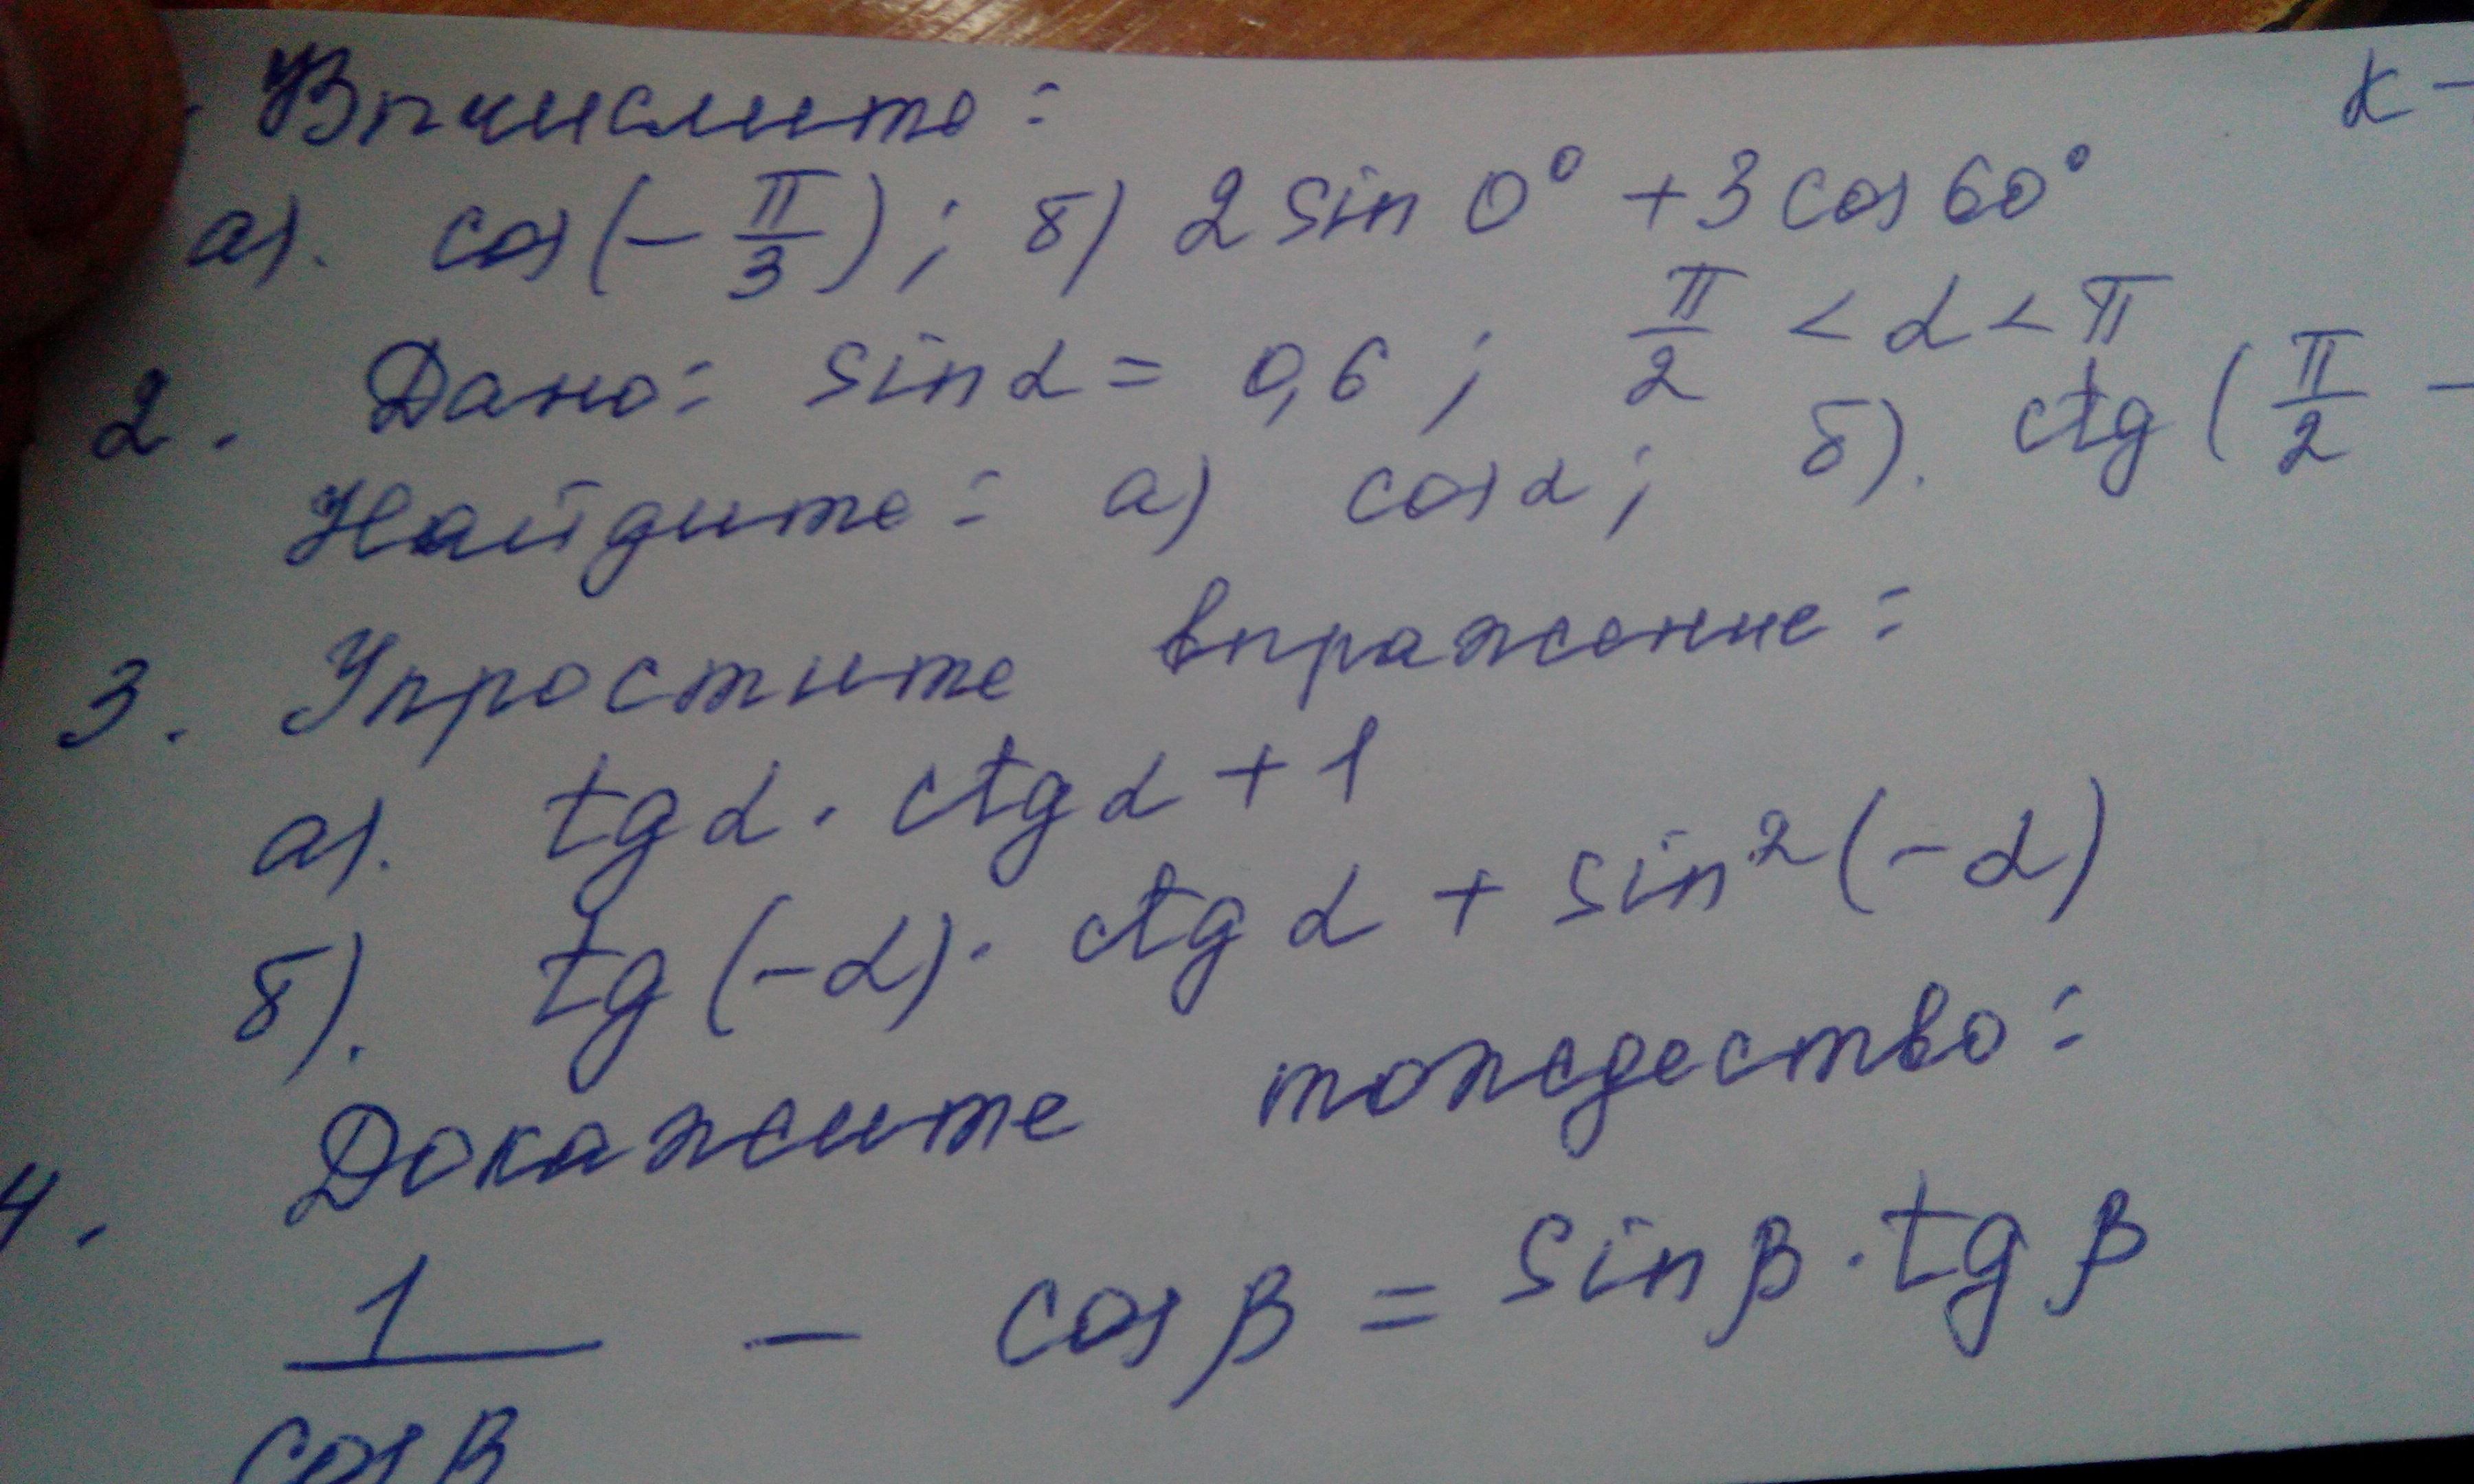 Вычислите: К-
а). cos(-π/3); б) 2 sin 0° + 3 cos 60°
2. Дано: sin α = 0,6; π/2 < α < π
Найдите: а) cos α; б). ctg (π/2 -
3. Упростите выражение:
а). tg α · ctg α + 1
б). tg (-α) · ctg α + sin²(-α)
4. Докажите тождество:
1/cos β - cos β = sin β · tg β